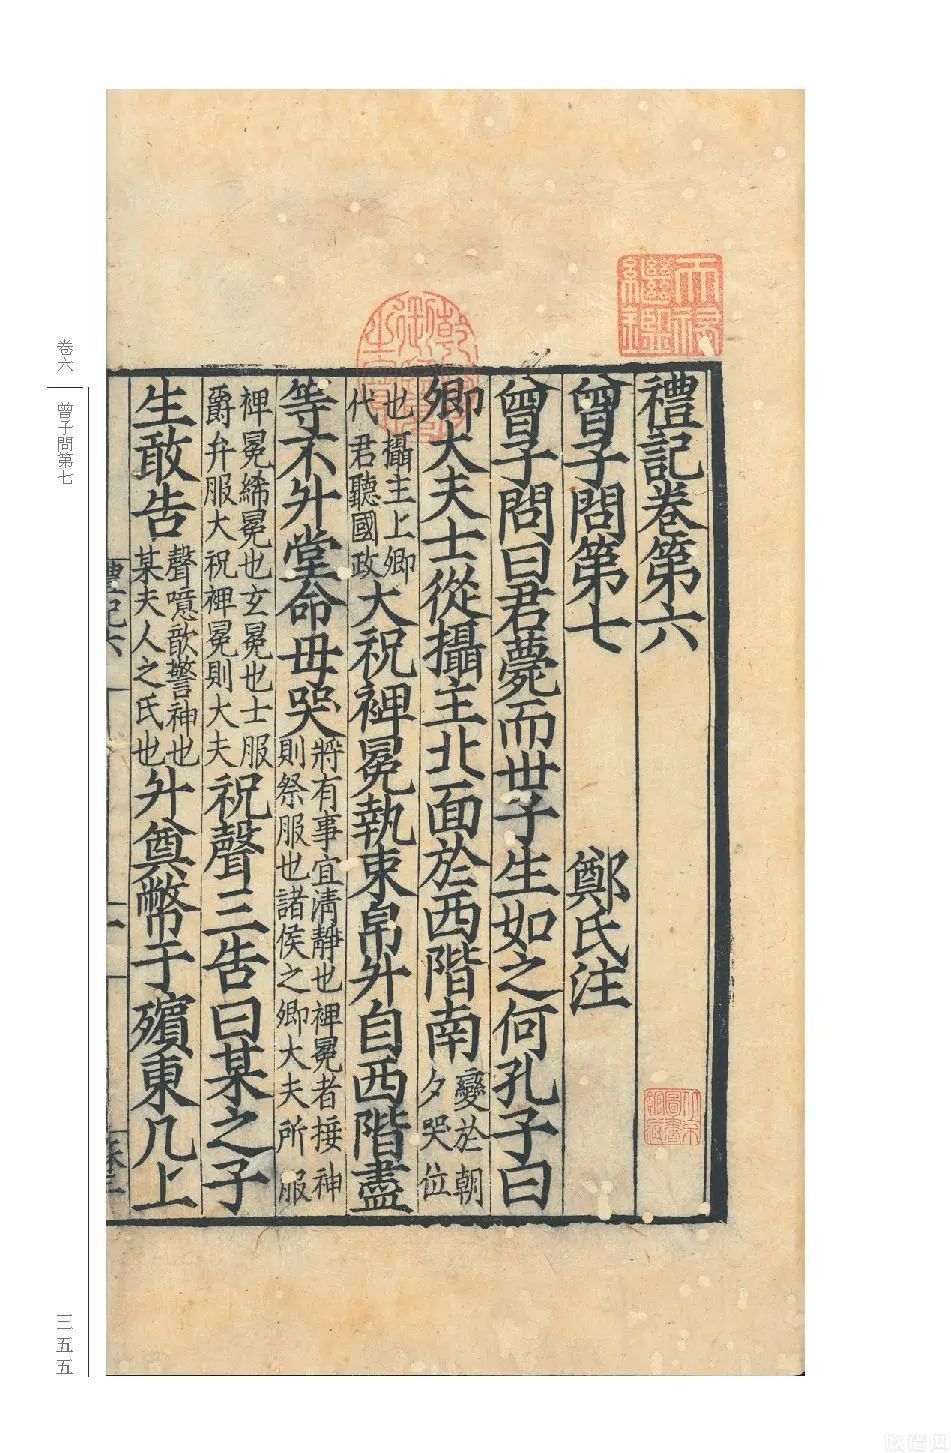 禮記卷第六
曾子問第七 鄭氏注
曾子問曰君薨而世子生如之何孔子曰
卿大夫士從攝主北面於西階南變於朝夕哭位
也攝主上卿代君聽國政大祝裨冕執束帛升自西階盡
等不升堂命毋哭將有事宜清靜也裨冕者接神則祭服也諸侯之卿大夫所服
裨冕絺冕也玄冕也士服爵弁服大祝裨冕則大夫祝聲三告曰某之子
生敢告聲噫歆警神也某夫人之氏也升奠幣于殯東几上
卷六
曾子問第七
三五五